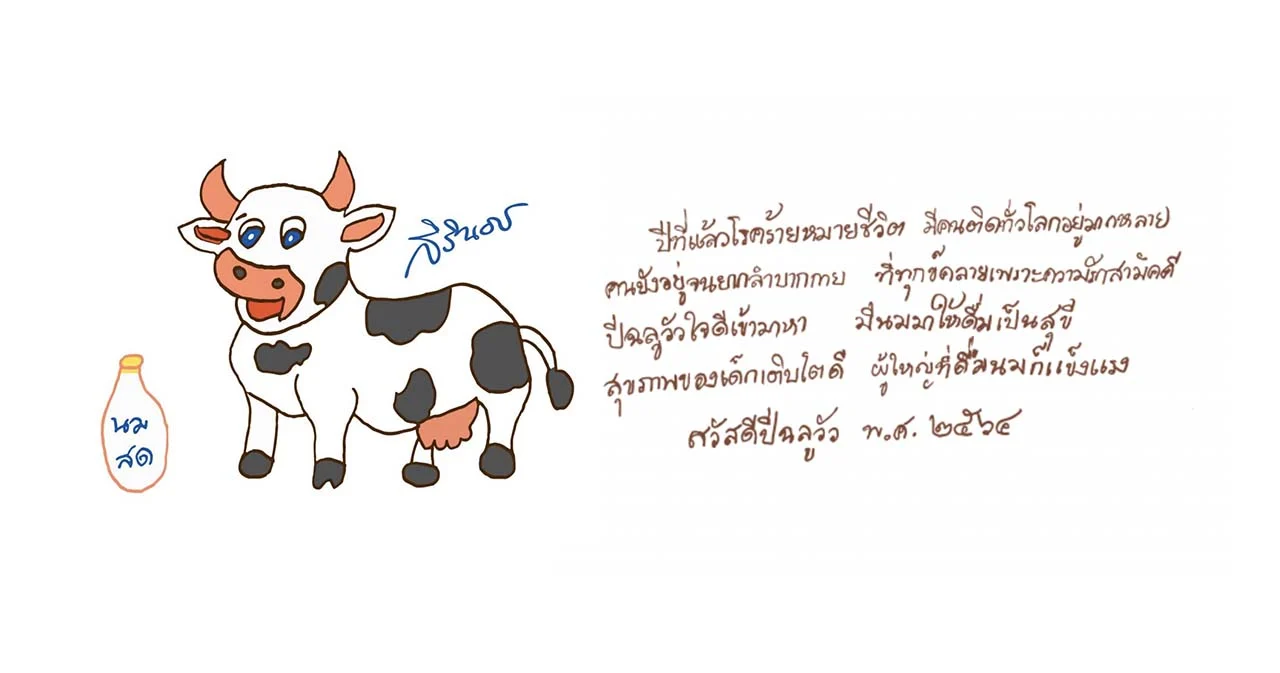 สิรินธร
นม
สด
ปีที่แล้วโรคร้ายหมายชีวิต มีคนติดทั่วโลกอยู่มากหลาย
คนยังอยู่จนยากลำบากกาย ที่ทุกข์คลายเพราะความรักสามัคคี
ปีฉลูวัวใจดีเข้ามาหา มีนมมาให้ดื่มเป็นสุขี
สุขภาพของเด็กเติบโตดี ผู้ใหญ่ที่ดื่มนมก็แข็งแรง
สวัสดีปีฉลูวัว พ.ศ. ๒๕๖๔